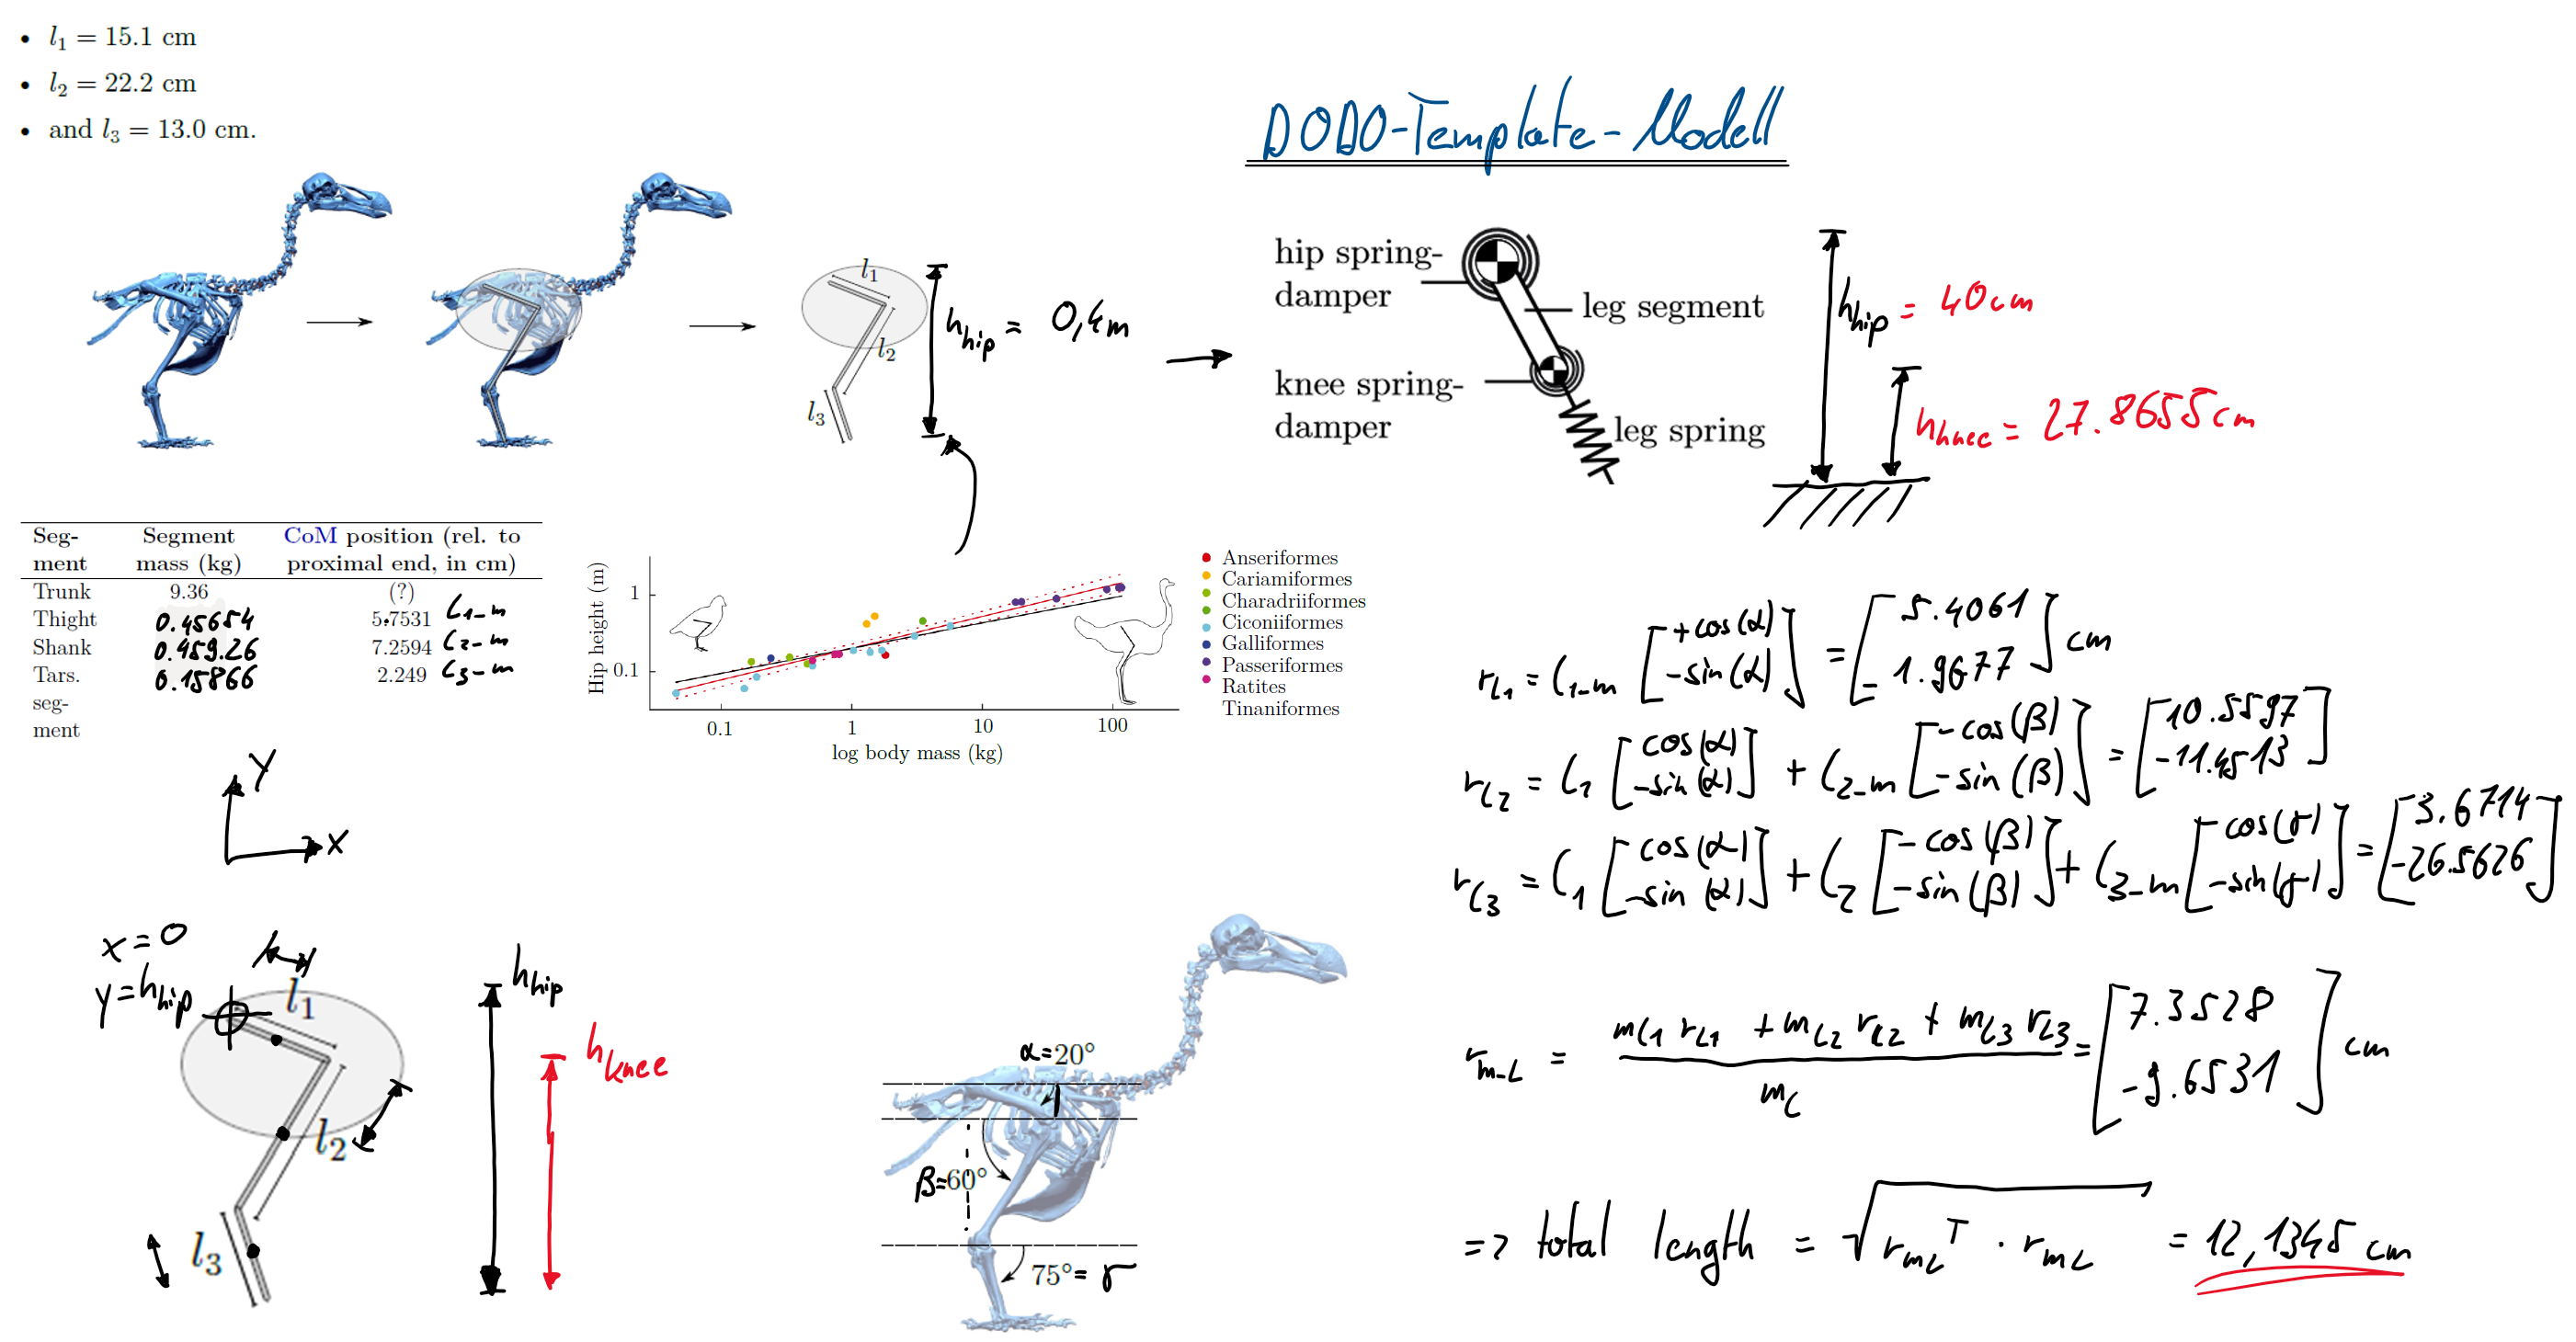 • l₁ = 15.1 cm
• l₂ = 22.2 cm
• and l₃ = 13.0 cm.
DODO-Template-Modell
l₁
l₂
l₃
h_hip = 0,4m
hip spring-
damper
leg segment
knee spring-
damper
leg spring
h_hip = 40cm
h_knee = 27.8655cm
Seg-
ment
Segment
mass (kg)
CoM position (rel. to
proximal end, in cm)
Trunk 9.36 (?)
Thight 0.45654 5.7531 L1-m
Shank 0.459.26 7.2594 L2-m
Tars. 0.15866 2.249 L3-m
seg-
ment
Hip height (m)
1
0.1
0.1 1 10 100
log body mass (kg)
Anseriformes
Cariamiformes
Charadriiformes
Ciconiiformes
Galliformes
Passeriformes
Ratites
Tinaniformes
r_L1 = L1-m [+cos(α) -sin(α)] = [5.4061 -1.9677] cm
r_L2 = L1 [cos(α) -sin(α)] + L2-m [-cos(β) -sin(β)] = [10.5597 -11.4513]
r_L3 = L1 [cos(α) -sin(α)] + L2 [-cos(β) -sin(β)] + L3-m [cos(γ) -sin(γ)] = [3.6714 -26.5626]
r_m-L = (m_L1 r_L1 + m_L2 r_L2 + m_L3 r_L3) / m_L = [7.3528 -9.6531] cm
=> total length = √(r_mL^T · r_mL) = 12,1345 cm
Y
X
x=0
y=h_hip
l₁
l₂
l₃
h_hip
h_knee
α=20°
β=60°
75°=γ